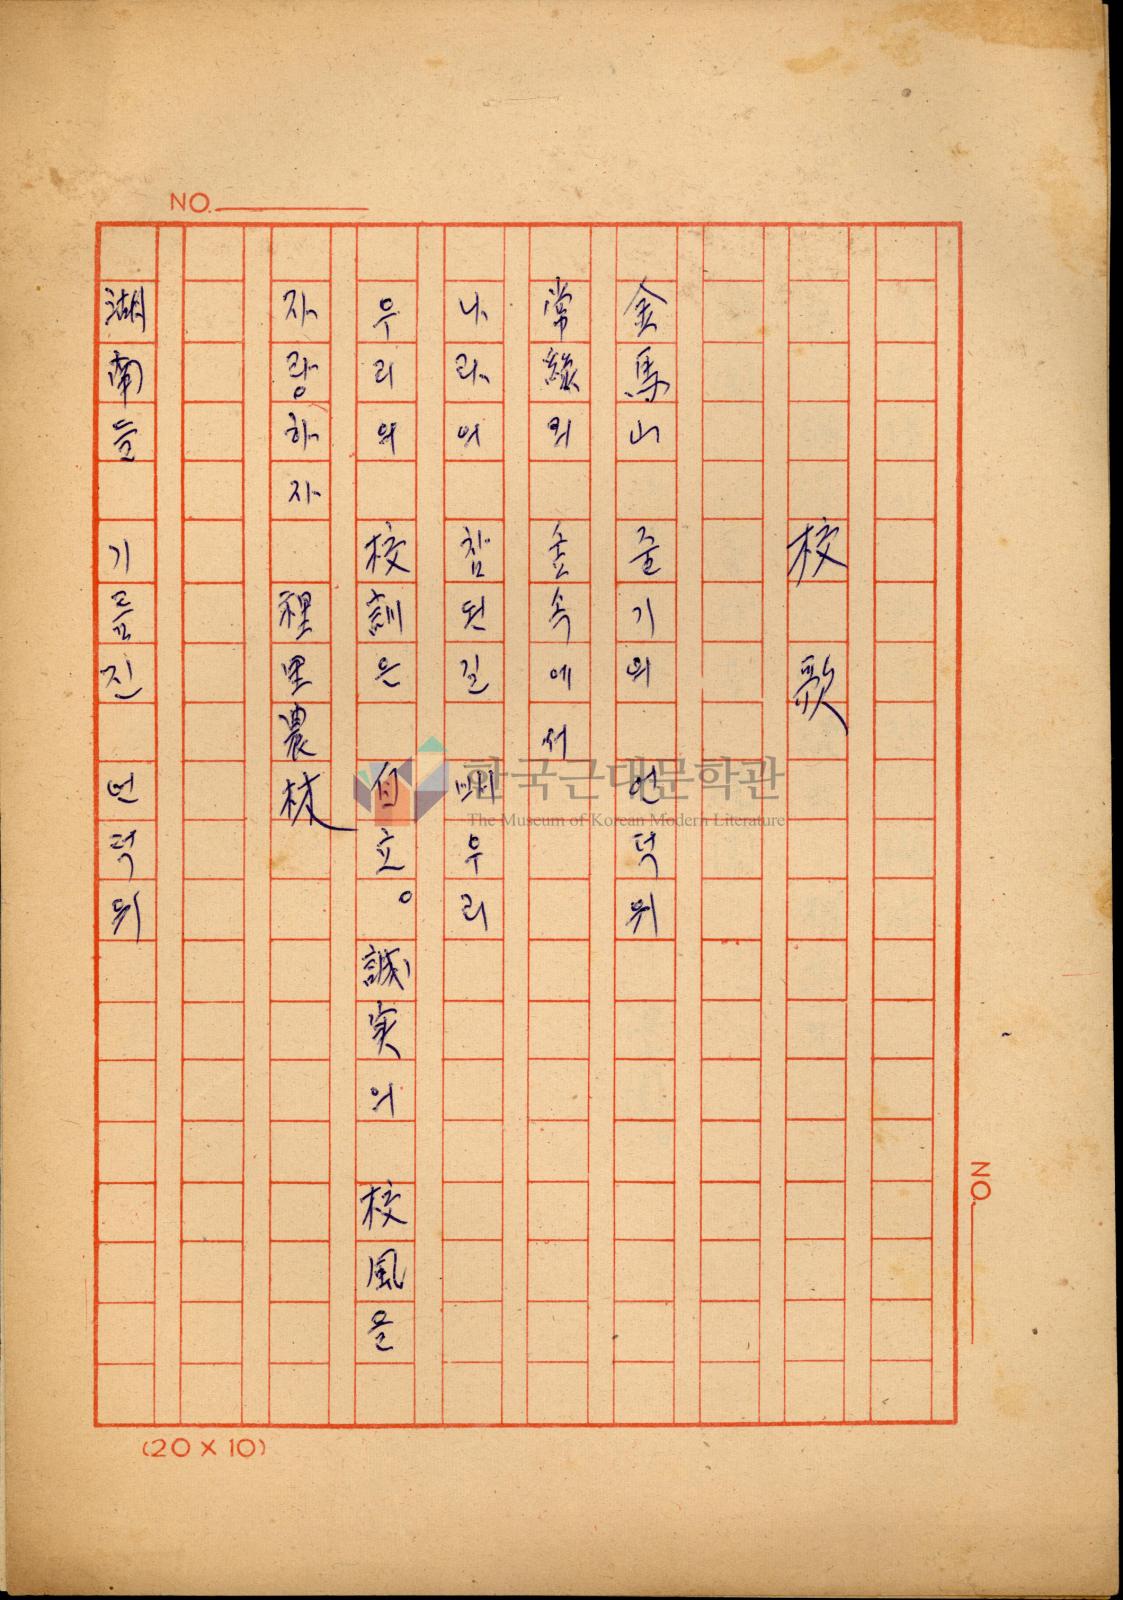 NO.
NO.
校歌
金馬山 줄기의 언덕위
常綠의 숲속에서
나라의 참된길 배우리
우리의 校訓은 自立。誠実의 校風을
자랑하자 裡里農林
湖南들 기름진 언덕위
(20 X 10)
한국근대문학관
The Museum of Korean Modern Literature